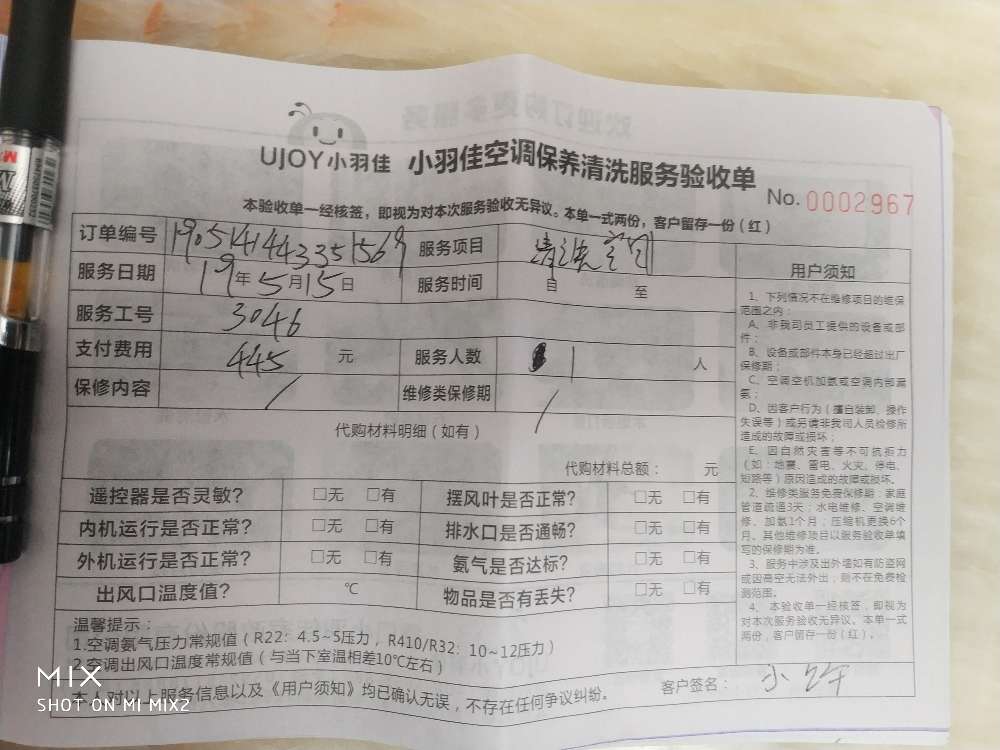 UJOY小羽佳 小羽佳空调保养清洗服务验收单
No. 0002967
本验收单一经核签，即视为对本次服务验收无异议。本单一式两份，客户留存一份（红）
订单编号 服务项目 清洗空调
服务日期 19年5月15日 服务时间 自 至
服务工号 3046
支付费用 445 元 服务人数 1 人
保修内容 / 维修类保修期 /
代购材料明细（如有）
代购材料总额： 元
遥控器是否灵敏？ □无 □有 摆风叶是否正常？ □无 □有
内机运行是否正常？ □无 □有 排水口是否通畅？ □无 □有
外机运行是否正常？ □无 □有 氨气是否达标？ □无 □有
出风口温度值？ ℃ 物品是否有丢失？ □无 □有
温馨提示：
1.空调氨气压力常规值（R22：4.5~5压力，R410/R32：10~12压力）
2.空调出风口温度常规值（与当下室温相差10℃左右）
本人对以上服务信息以及《用户须知》均已确认无误，不存在任何争议纠纷。
客户签名：
用户须知
1、下列情况不在维修项目的维保
范围之内：
A、非我司员工提供的设备或部
件；
B、设备或部件本身已经超过出厂
保修期；
C、空调空机加氨或空调内部漏
氨；
D、因客户行为（擅自装卸、操作
失误等）或另请非我司人员检修所
造成的故障或损坏；
E、因自然灾害等不可抗拒力
（如：地震、雷电、火灾、停电、
短路等）原因造成的故障或损坏。
2、维修类服务免费保修期：家庭
管道疏通3天；水电维修、空调维
修、加氨1个月；压缩机更换6个
月。其他维修项目以服务验收单填
写的保修期为准。
3、服务中涉及出外墙如有防盗网
或因高空无法外出，则不在免费检
测范围。
4、本验收单一经核签，即视为
对本次服务验收无异议。本单一式
两份，客户留存一份（红）。
MIX
SHOT ON MI MIX2